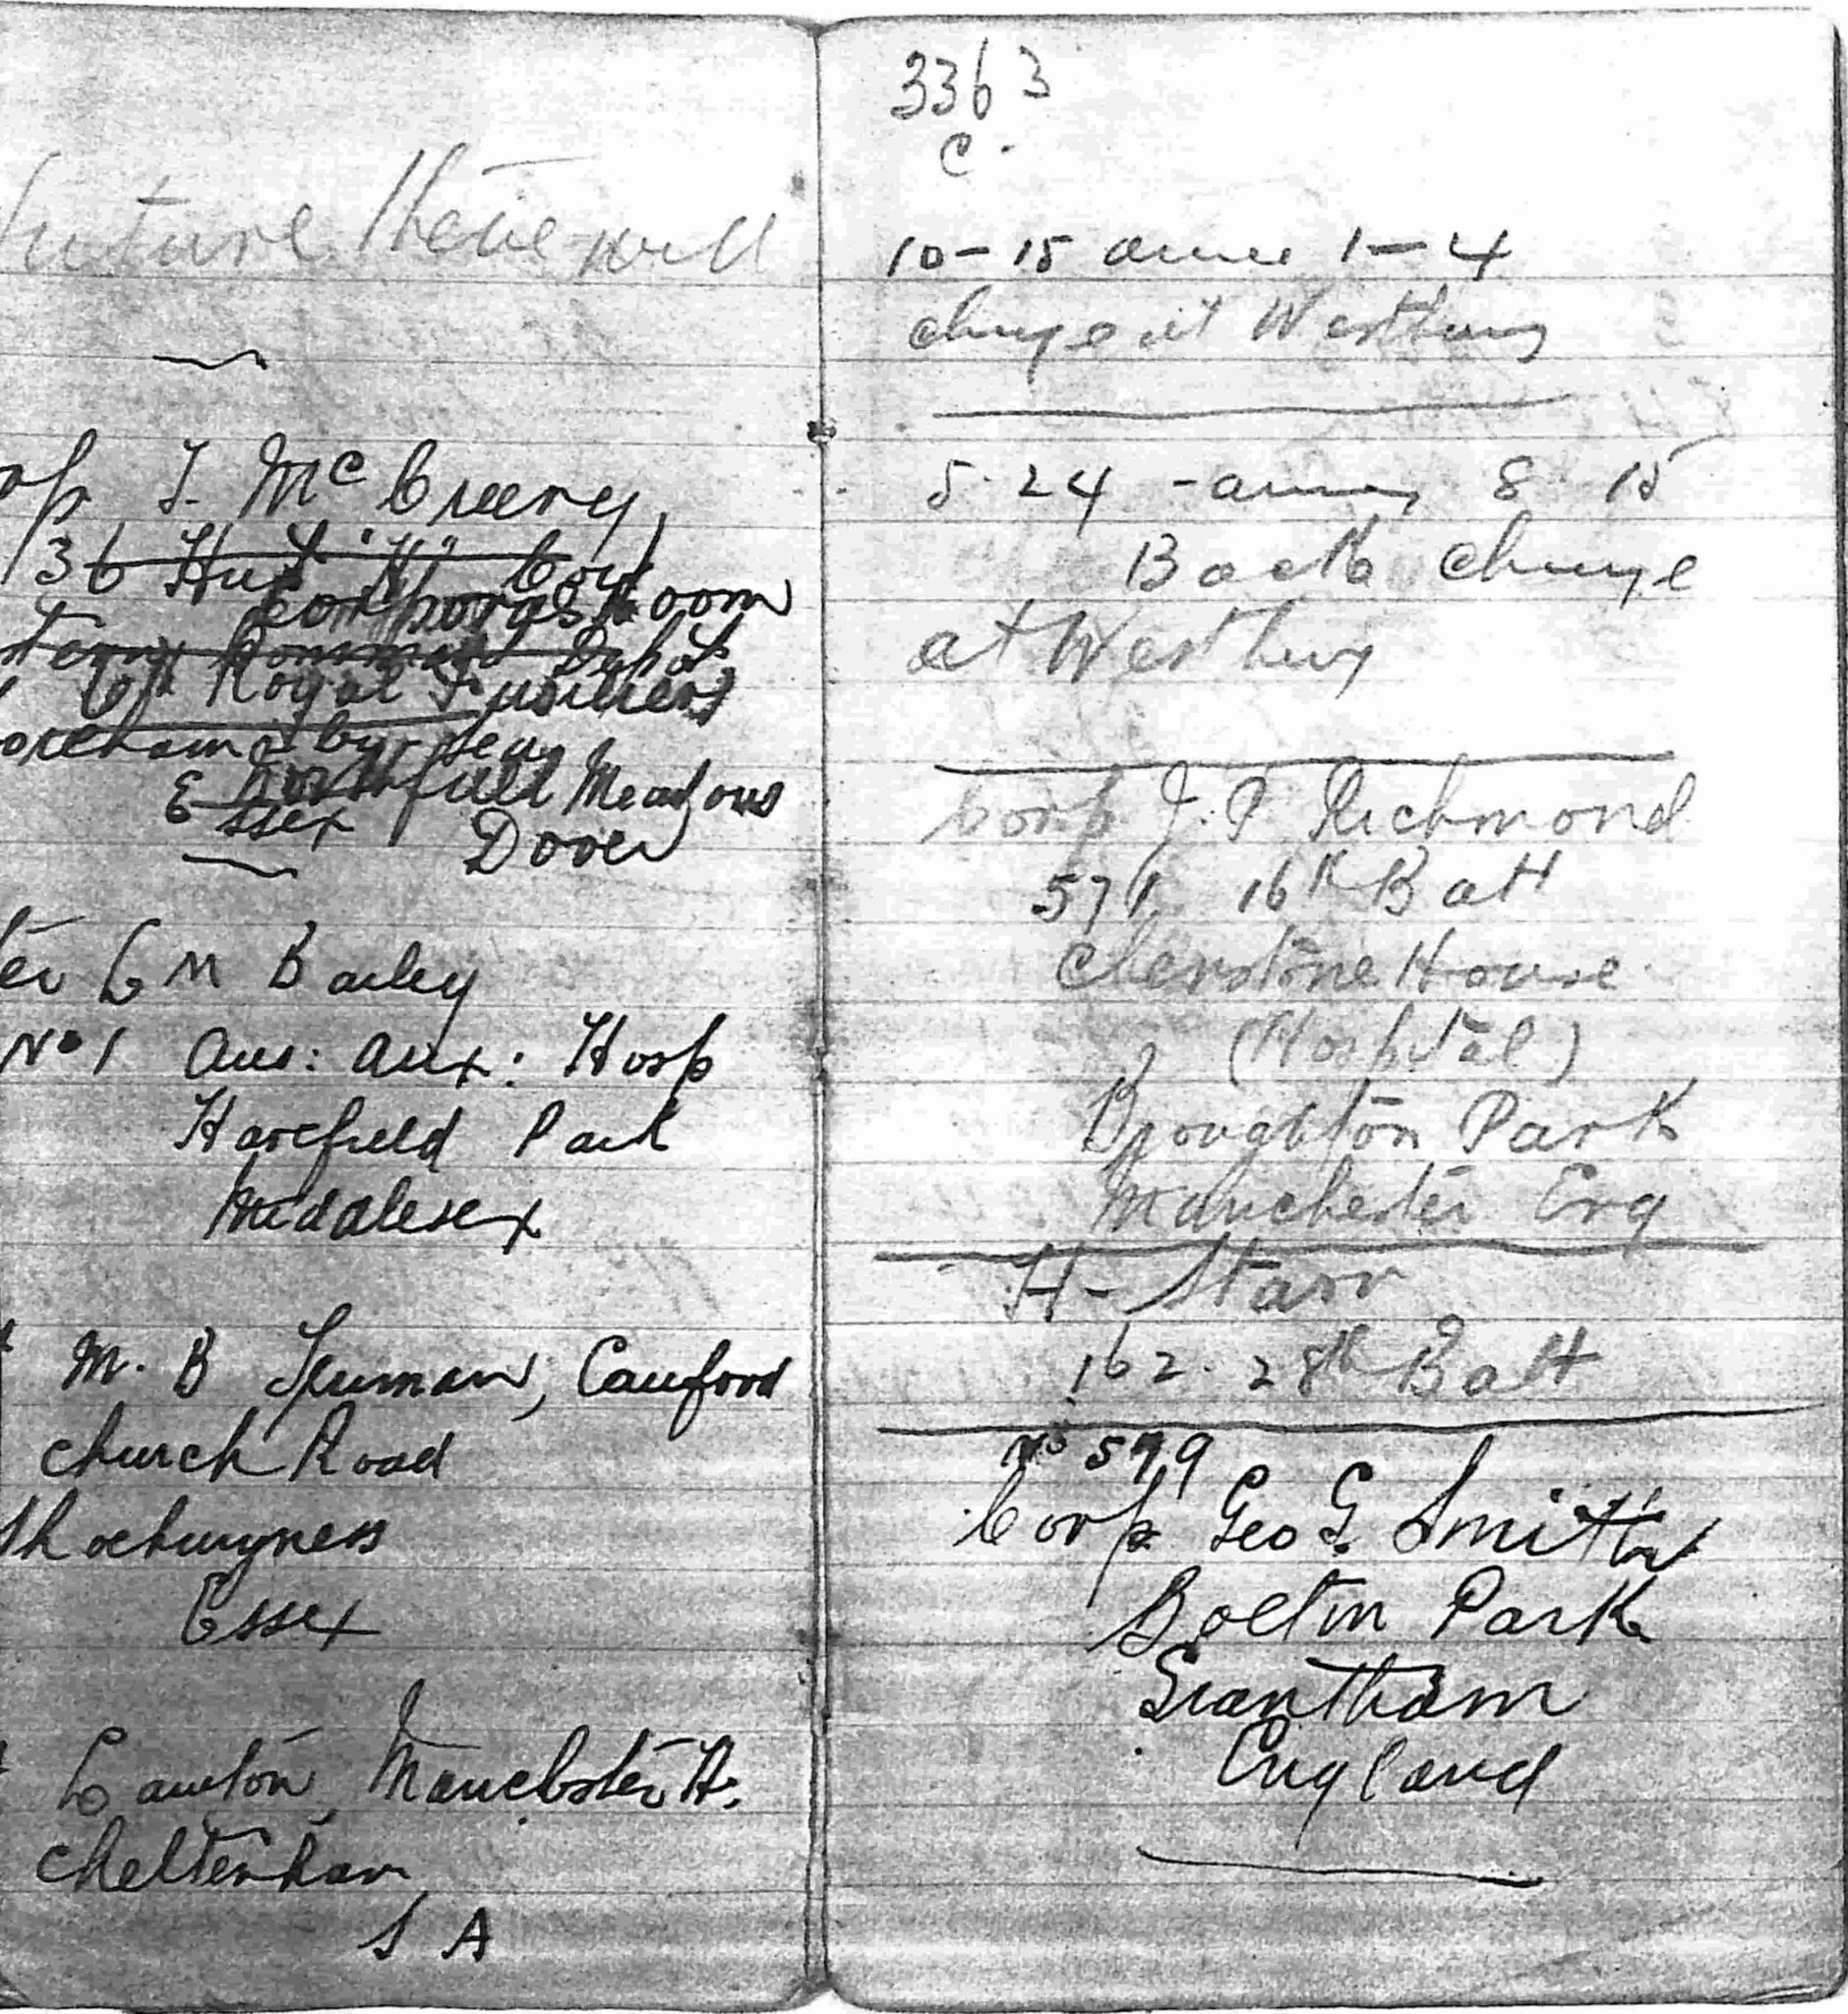 future there will
T. McCreery,
36 Hut "H" Coy
Corporals Room
Command Depot
6th Royal Fusiliers
by Sea
Northfield Meadows
Essex
Dover
C M Bailey
No 1 Aus: Aux: Hosp
Harefield Park
Middlesex
M. B Canford
Church Road
Shoeburyness
Essex
Manchester St.
Cheltenham
S A
3363
C.
10-15 arrive 1-4
change at Westbury
5.24 - arrive 8 15
Back change
at Westbury
Corp J. P Richmond
571 16th Batt
House
(Hospital)
Broughton Park
Manchester Eng
H - Starr
162. 28th Batt
No 579
Corp Geo G Smith
Belton Park
Grantham
England